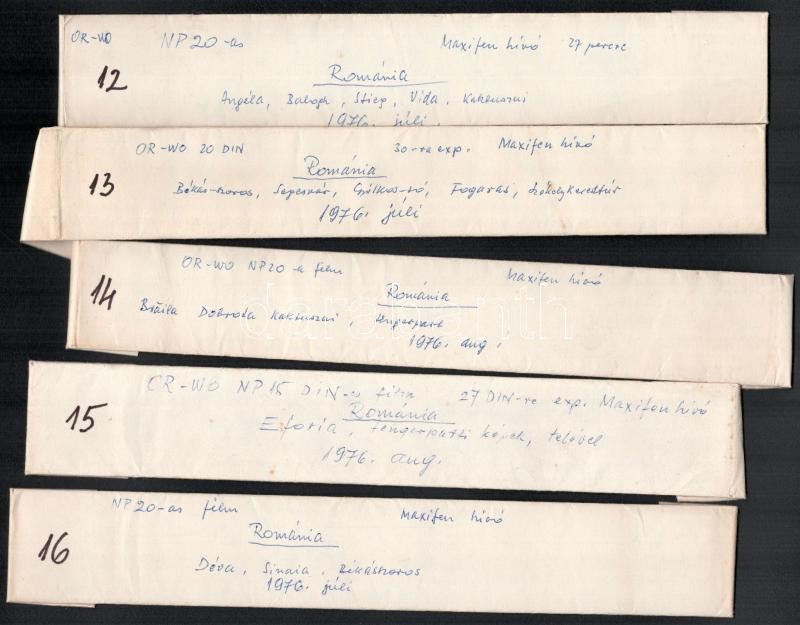 OR-WO NP 20-as Maxifen hívó 27 perces
12
România
Angéla, Balogh, Stieg, Vida, Kaktuszai
1976. júli.
OR-WO 20 DIN 30-ra exp. Maxifen hívó
13
Románia
Békás-szoros, Segesvár, Gyilkos-tó, Fogaras, Székelykeresztúr
1976. júli
OR-WO NP20-a film Maxifen hívó
14
Románia
Brăila Dobrota Kaktuszai, tengerpart
1976. aug.
OR-WO NP 15 DIN-s film 27 DIN-re exp. Maxifen hívó
15
Románia
Eforia, tengerparti képek,
1976. aug.
NP 20-as film Maxifen hívó
16
Románia
Déva, Sinaia, Békásszoros
1976. júli
darabanth